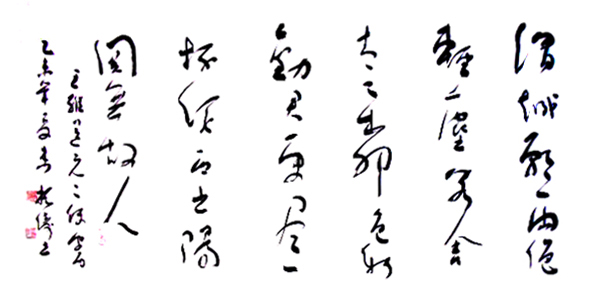 渭城朝雨浥
輕塵客舍
青青柳色新
勸君更盡一
杯酒西出陽
關無故人
王維送元二使安西
乙未年